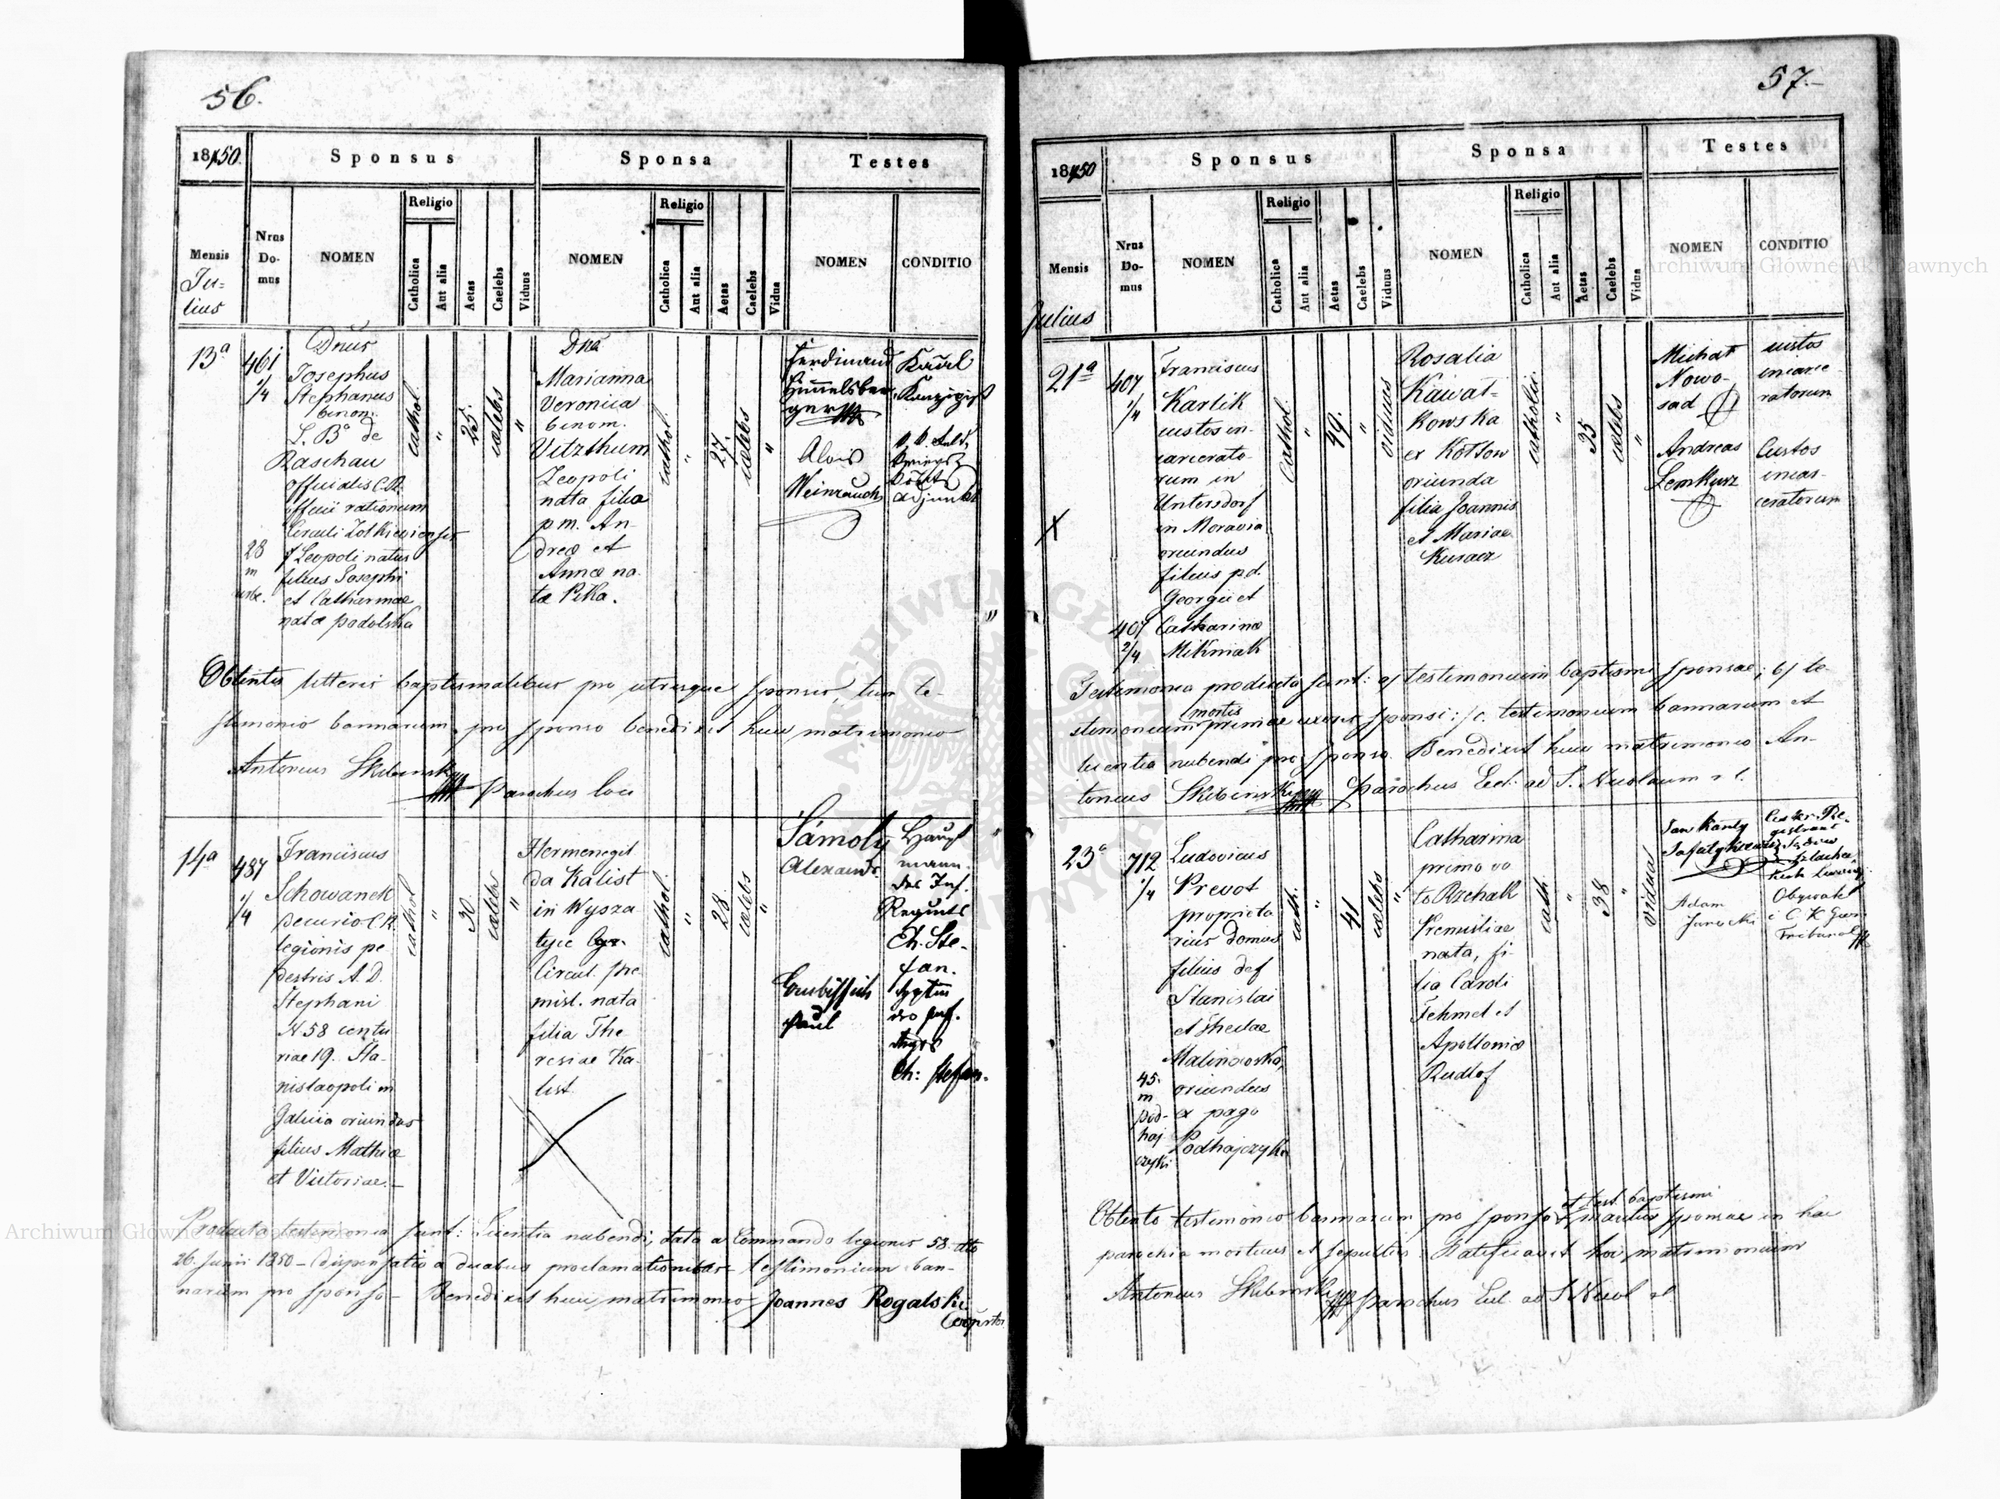 56.
1850.
Sponsus
Sponsa
Testes
Mensis
Nrus Do-mus
NOMEN
Religio
Catholica
Aut alia
Aetas
Caelebs
Viduus
NOMEN
Religio
Catholica
Aut alia
Aetas
Caelebs
Vidua
NOMEN
CONDITIO
Ju-
lius
13a
461
1/4
Dnus
Josephus
Stephanus
binom.
L. Ba de
Raschau
officialis C.R.
officii rationum
Circuli Zolkieviensis
Leopoli natus
filius Josephi
et Catharinae
natae Podolska
28
in
urbe.
cathol.
"
25.
caelebs
"
Dna
Marianna
Veronica
binom.
Vitzthum
Leopoli
nata filia
p m. An-
dreae et
Annae na-
tae Pilka.
cathol.
"
27.
caelebs
"
Ferdinand
Himmelsber-
ger
Alois
Weinrauch
Kanzigist
Adjunkt
Obtentis litteris baptismalibus pro utroque sponso, tum te-
stimonio bannorum pro sponso benedixit huic matrimonio
Antonius Skibinski parochus loci
14a
487
1/4
Franciscus
Schowanek
Decurio C.R.
legionis pe
destris A.D.
Stephani
N 58 centu
riae 19. Sta-
nislaopoli in
Galicia oriundus
filius Mathiae
et Victoriae.
cathol.
"
30.
caelebs
"
Hermenegil
da Kalist
in Wysza
tyce
Circul. pre
misl. nata
filia The
resiae Ka-
list
cathol.
"
28.
caelebs
"
Sámoly
Alexander
Paul
Haupt
mann
des Inf.
Regmts
Eh. Ste-
fan.
Eh: Stefan.
Producta testimonia sunt: Licentia nubendi, data a Commando legionis 58. dtto
26. Junii 1850 – Dispensatio a duabus proclamationibus – testimonium ban-
norum pro sponso – Benedixit huic matrimonio Joannes Rogalski
Cooprtor
57.
1850
Sponsus
Sponsa
Testes
Mensis
Nrus Do-mus
NOMEN
Religio
Catholica
Aut alia
Aetas
Caelebs
Viduus
NOMEN
Religio
Catholica
Aut alia
Aetas
Caelebs
Vidua
NOMEN
CONDITIO
Julius
21a
407
1/4
Franciscus
Karlik
custos in-
carcerato-
rum in
Untersdorf
in Moravia
oriundus
filius p.d.
Georgii et
Catharinae
Mikniak
407
2/4
cathol.
"
49.
"
viduus
Rosalia
Kawat-
kowska
ex Kottow
oriunda
filia Joannis
et Mariae
Kuracz
catholic.
"
35
caelebs
"
Michał
Nowo-
sad
custos
incarce-
ratorum
Andreas
Lemkurz
Custos
incar-
ceratorum
Testimonia producta sunt: a/ testimonium baptismi sponsae; b/ te-
stimonium mortis primae uxoris sponsi: /c. testimonium bannorum et
licentia nubendi pro sponso. Benedixit huic matrimonio An-
tonius Skibinski parochus Eccl. ad S. Nicolaum r l.
23a
712
1/4
Ludovicus
Prevot
proprieta
rius domus
filius def
Stanislai
et Theclae
Malinowska,
oriundus
ex pago
Podhajczyki
45.
in
pod-
haj
czyki
cath.
"
41
caelebs
"
Catharina
primo vo
to Paschall
Premisliae
nata, fi-
lia Caroli
Fehmel et
Apolloniae
Rudlof
cath.
"
38
"
vidua
Jan Kanty
Adam
Janocki
Obywatel
i C K Gwr
Tribunal
Obtento testimonio bannorum pro sponso et test. baptismi mariti sponsae in hac
parochia mortuus et sepultus. Ratificavit hoc matrimonium
Antonius Skibinski parochus Eccl. ad S Nicol r l.
Archiwum Główne Akt Dawnych
Archiwum Główne Akt Dawnych
ARCHIWUM GŁÓWNE AKT DAWNYCH